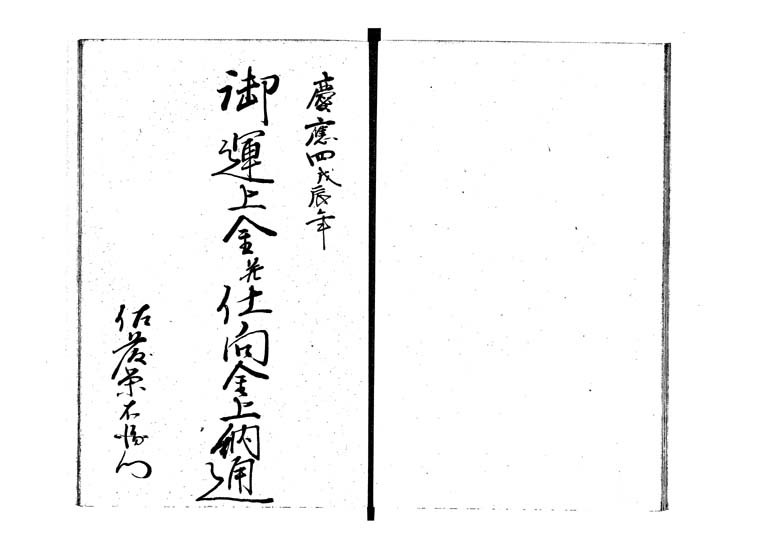 慶應四戊辰年
御運上金並仕向金上納通
佐藤栄右衛門